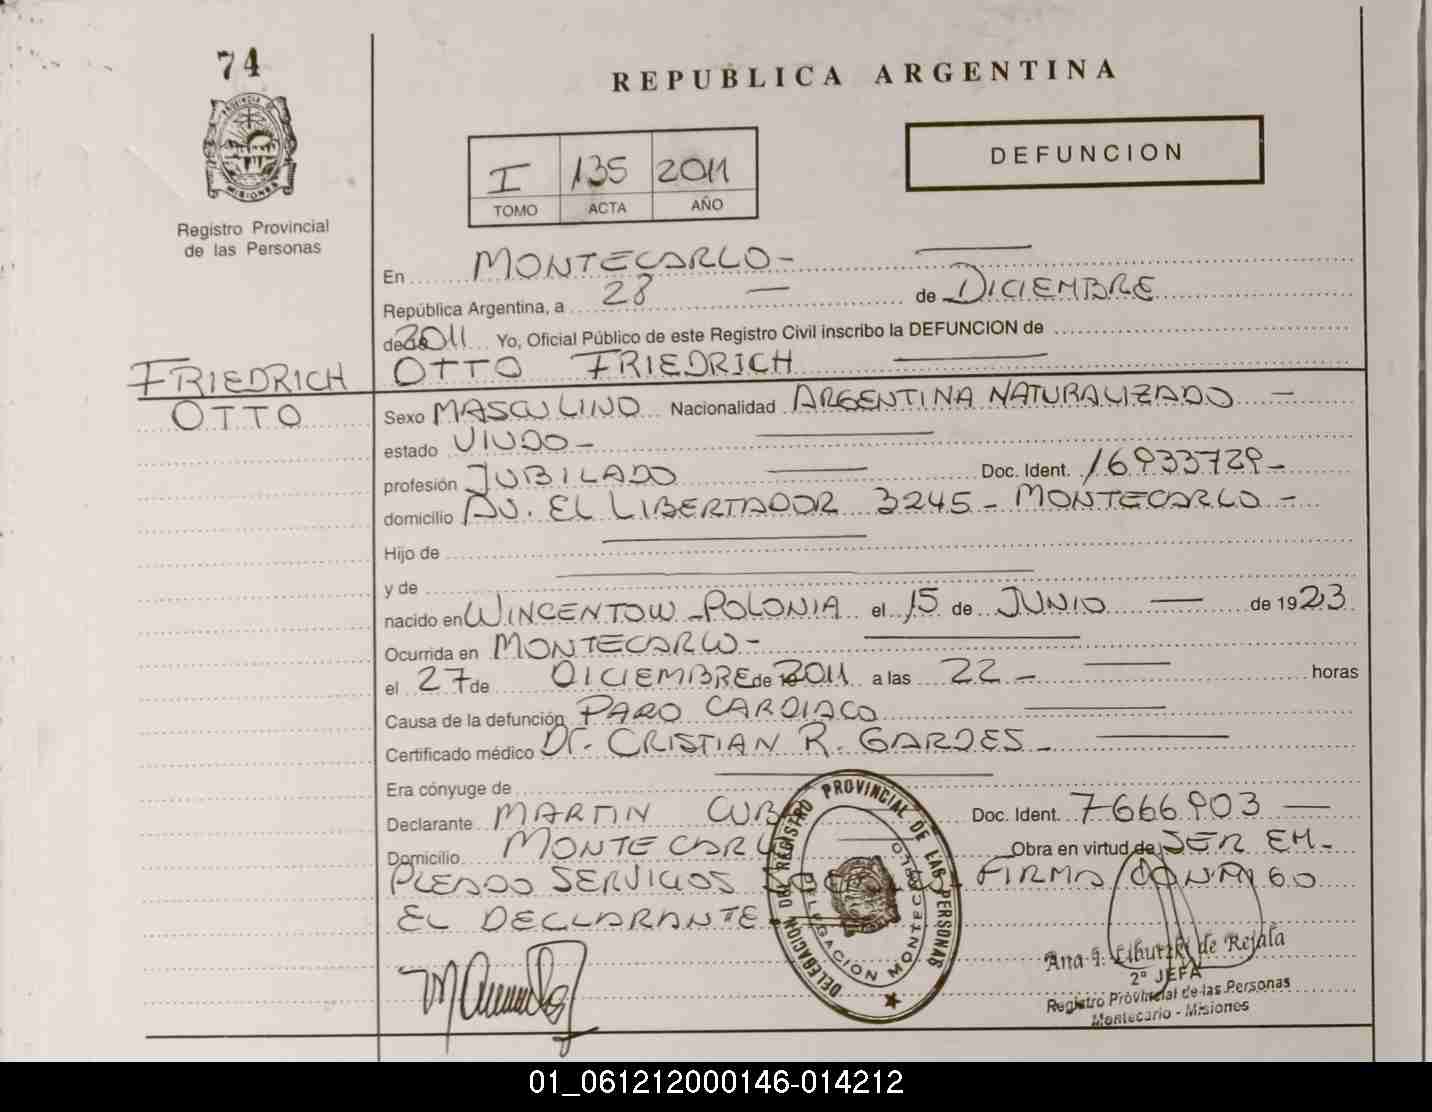 74
PROVINCIA DE
MISIONES
Registro Provincial
de las Personas
REPUBLICA ARGENTINA
I 135 2011
TOMO ACTA AÑO
DEFUNCION
En MONTECARLO-
República Argentina, a 28 — de DICIEMBRE
de 2011 Yo, Oficial Público de este Registro Civil inscribo la DEFUNCION de
FRIEDRICH OTTO FRIEDRICH
OTTO
Sexo MASCULINO Nacionalidad ARGENTINA NATURALIZADO —
estado VIUDO-
profesión JUBILADO Doc. Ident. 16933729-
domicilio AV. EL LIBERTADOR 3245 - MONTECARLO -
Hijo de
y de
nacido en WINCENTOW - POLONIA el 15 de JUNIO — de 1923
Ocurrida en MONTECARLO-
el 27 de DICIEMBRE de 2011 a las 22 - horas
Causa de la defunción PARO CARDIACO
Certificado médico Dr. CRISTIAN R. GARDES -
Era cónyuge de
Declarante MARTIN Doc. Ident. 7666903 —
Domicilio MONTECARLO Obra en virtud de SER EM-
PLEADO SERVICIOS FIRMA CONMIGO
EL DECLARANTE
DELEGACION DEL REGISTRO PROVINCIAL DE LAS PERSONAS
DELEGACION MONTECARLO
Ana I. Liburzki de Rejala
2º JEFA
Registro Provincial de las Personas
Montecarlo - Misiones
01_061212000146-014212